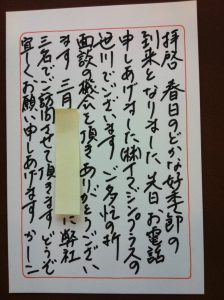 拝啓 春日のどかな好季節の
到来となりました 先日お電話
申しあげました(株)イマジンプラスの
辺川でございます ご多忙の折
面談の機会を頂きありがとうござい
ます 三月
に弊社
三名でご訪問させて頂きます どうぞ
宜しくお願い申しあげます かしこ